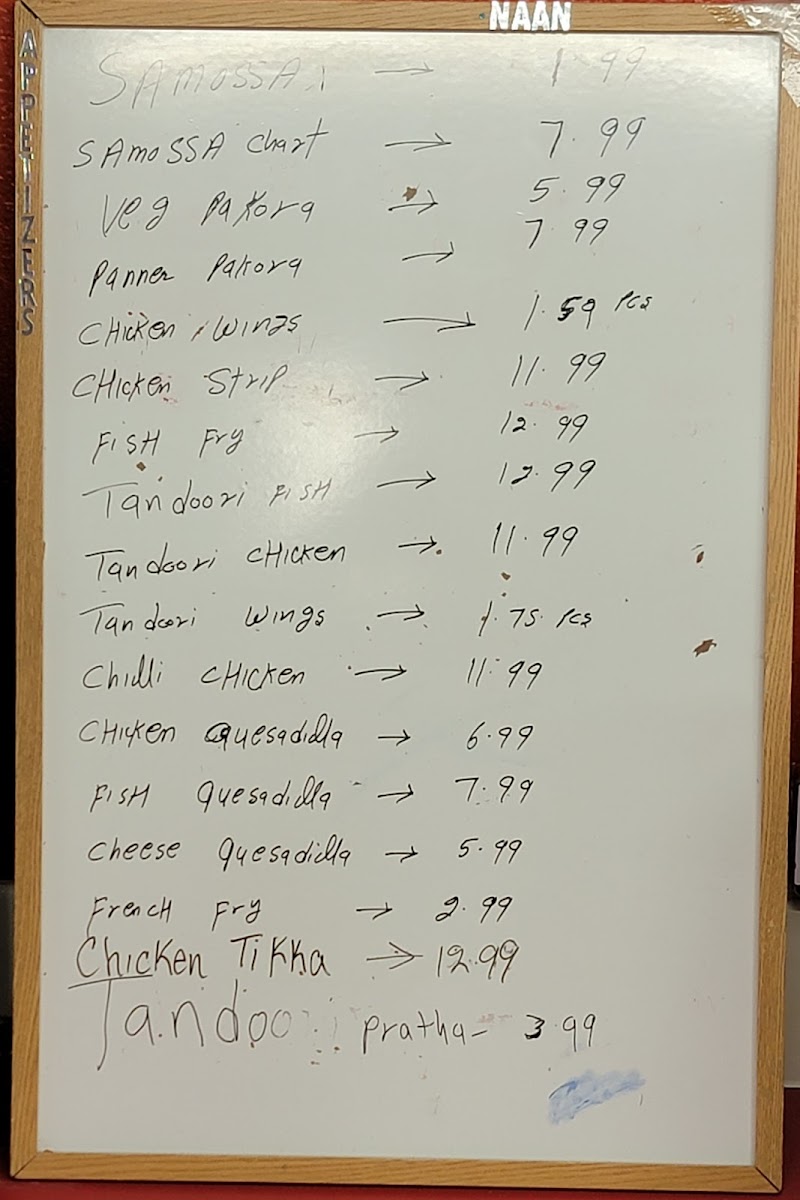 NAAN
APPETIZERS
SAMOSSA → 1 99
SAMOSSA chart → 7.99
Veg Pakora → 5.99
Panner Pakora → 7 99
CHicken Wings → 1.59 Pcs
CHicken Strip → 11.99
FISH Fry → 12.99
Tandoori FISH → 12.99
Tandoori CHicken → 11.99
Tandoori Wings → 1.75. Pcs
Chilli CHicken → 11.99
CHicken Quesadilla → 6.99
FISH Quesadilla → 7.99
Cheese Quesadilla → 5.99
French Fry → 2.99
Chicken Tikka → 12.99
Tandoori pratha - 3.99